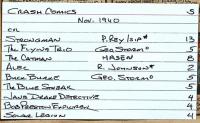 CRASH COMICS 5
NOV. 1940
STRONGMAN P. REY ISIP* 13
THE FLYING TRIO GEO. STORM° 5
THE CATMAN HASEN 8
ALEC R. JOHNSON* 2
BUCK BURKE GEO. STORM° 5
THE BLUE STREAK 5
JANE DRAKE DETECTIVE 4
BOB PRESTON EXPLORER 4
SOLAR LEGION 4